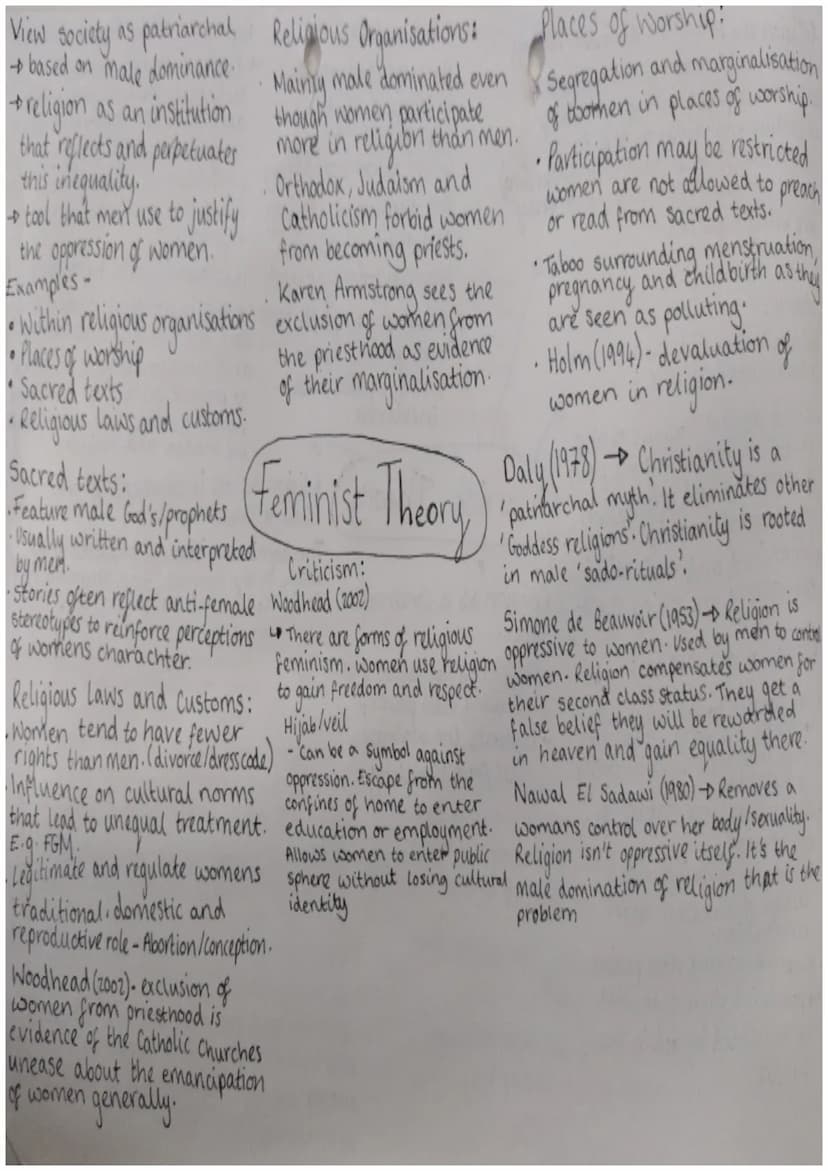 View society as patriarchal
→ based on male dominance.
→ religion as an institution
that reflects and perpetuates
this inequality.
→ tool that men use to justify
the oppression of women.
Examples -
• Within religious organisations
• Places of worship
• Sacred texts
• Religious laws and customs.
Religious Organisations:
. Mainly male dominated even
though women participate
more in religion than men.
. Orthodox, Judaism and
Catholicism forbid women
from becoming priests.
. Karen Armstrong sees the
exclusion of women from
the priesthood as evidence
of their marginalisation.
Places of worship:
• Segregation and marginalisation
of women in places of worship.
• Participation may be restricted
women are not allowed to preach
or read from sacred texts.
• Taboo surrounding menstruation,
pregnancy and childbirth as they
are seen as polluting.
• Holm (1994) - devaluation of
women in religion.
Feminist Theory
Sacred texts:
. Feature male God's/prophets
. Usually written and interpreted
by men.
. Stories often reflect anti-female
stereotypes to reinforce perceptions
of womens charachter.
Religious Laws and Customs:
. Women tend to have fewer
rights than men. (divorce/dresscode)
. Influence on cultural norms
that lead to unequal treatment.
E.g. FGM.
. Legitimate and regulate womens
traditional, domestic and
reproductive role - Abortion/conception.
Woodhead (2002) - exclusion of
women from priesthood is
evidence of the Catholic Churches
unease about the emancipation
of women generally.
Criticism:
Woodhead (2002)
↳ There are forms of religious
feminism. Women use religion
to gain freedom and respect.
Hijab/veil
- Can be a symbol against
oppression. Escape from the
confines of home to enter
education or employment.
Allows women to enter public
sphere without losing cultural
identity
Daly (1978) → Christianity is a
'patriarchal myth'. It eliminates other
'Goddess religions'. Christianity is rooted
in male 'sado-rituals'.
Simone de Beauvoir (1953) → Religion is
oppressive to women. Used by men to control
women. Religion compensates women for
their second class status. They get a
false belief they will be rewarded
in heaven and gain equality there.
Nawal El Sadawi (1980) → Removes a
womans control over her body/sexuality.
Religion isn't oppressive itself. It's the
male domination of religion that is the
problem